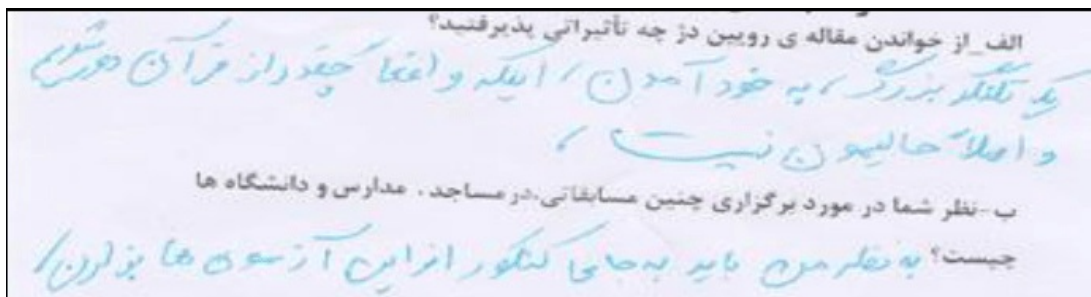 الف_از خواندن مقاله ی رویین دژ چه تأثیراتی پذیرفتید؟
یک تلنگر بزرگ، به خود آمدن، اینکه واقعا چقدر از قرآن دور شدیم
و اصلاً حالیمون نیست،
ب-نظر شما در مورد برگزاری چنین مسابقاتی،در مساجد ، مدارس و دانشگاه ها
چیست؟ به نظر من باید به جای کنکور از این آزمون ها بزارن/